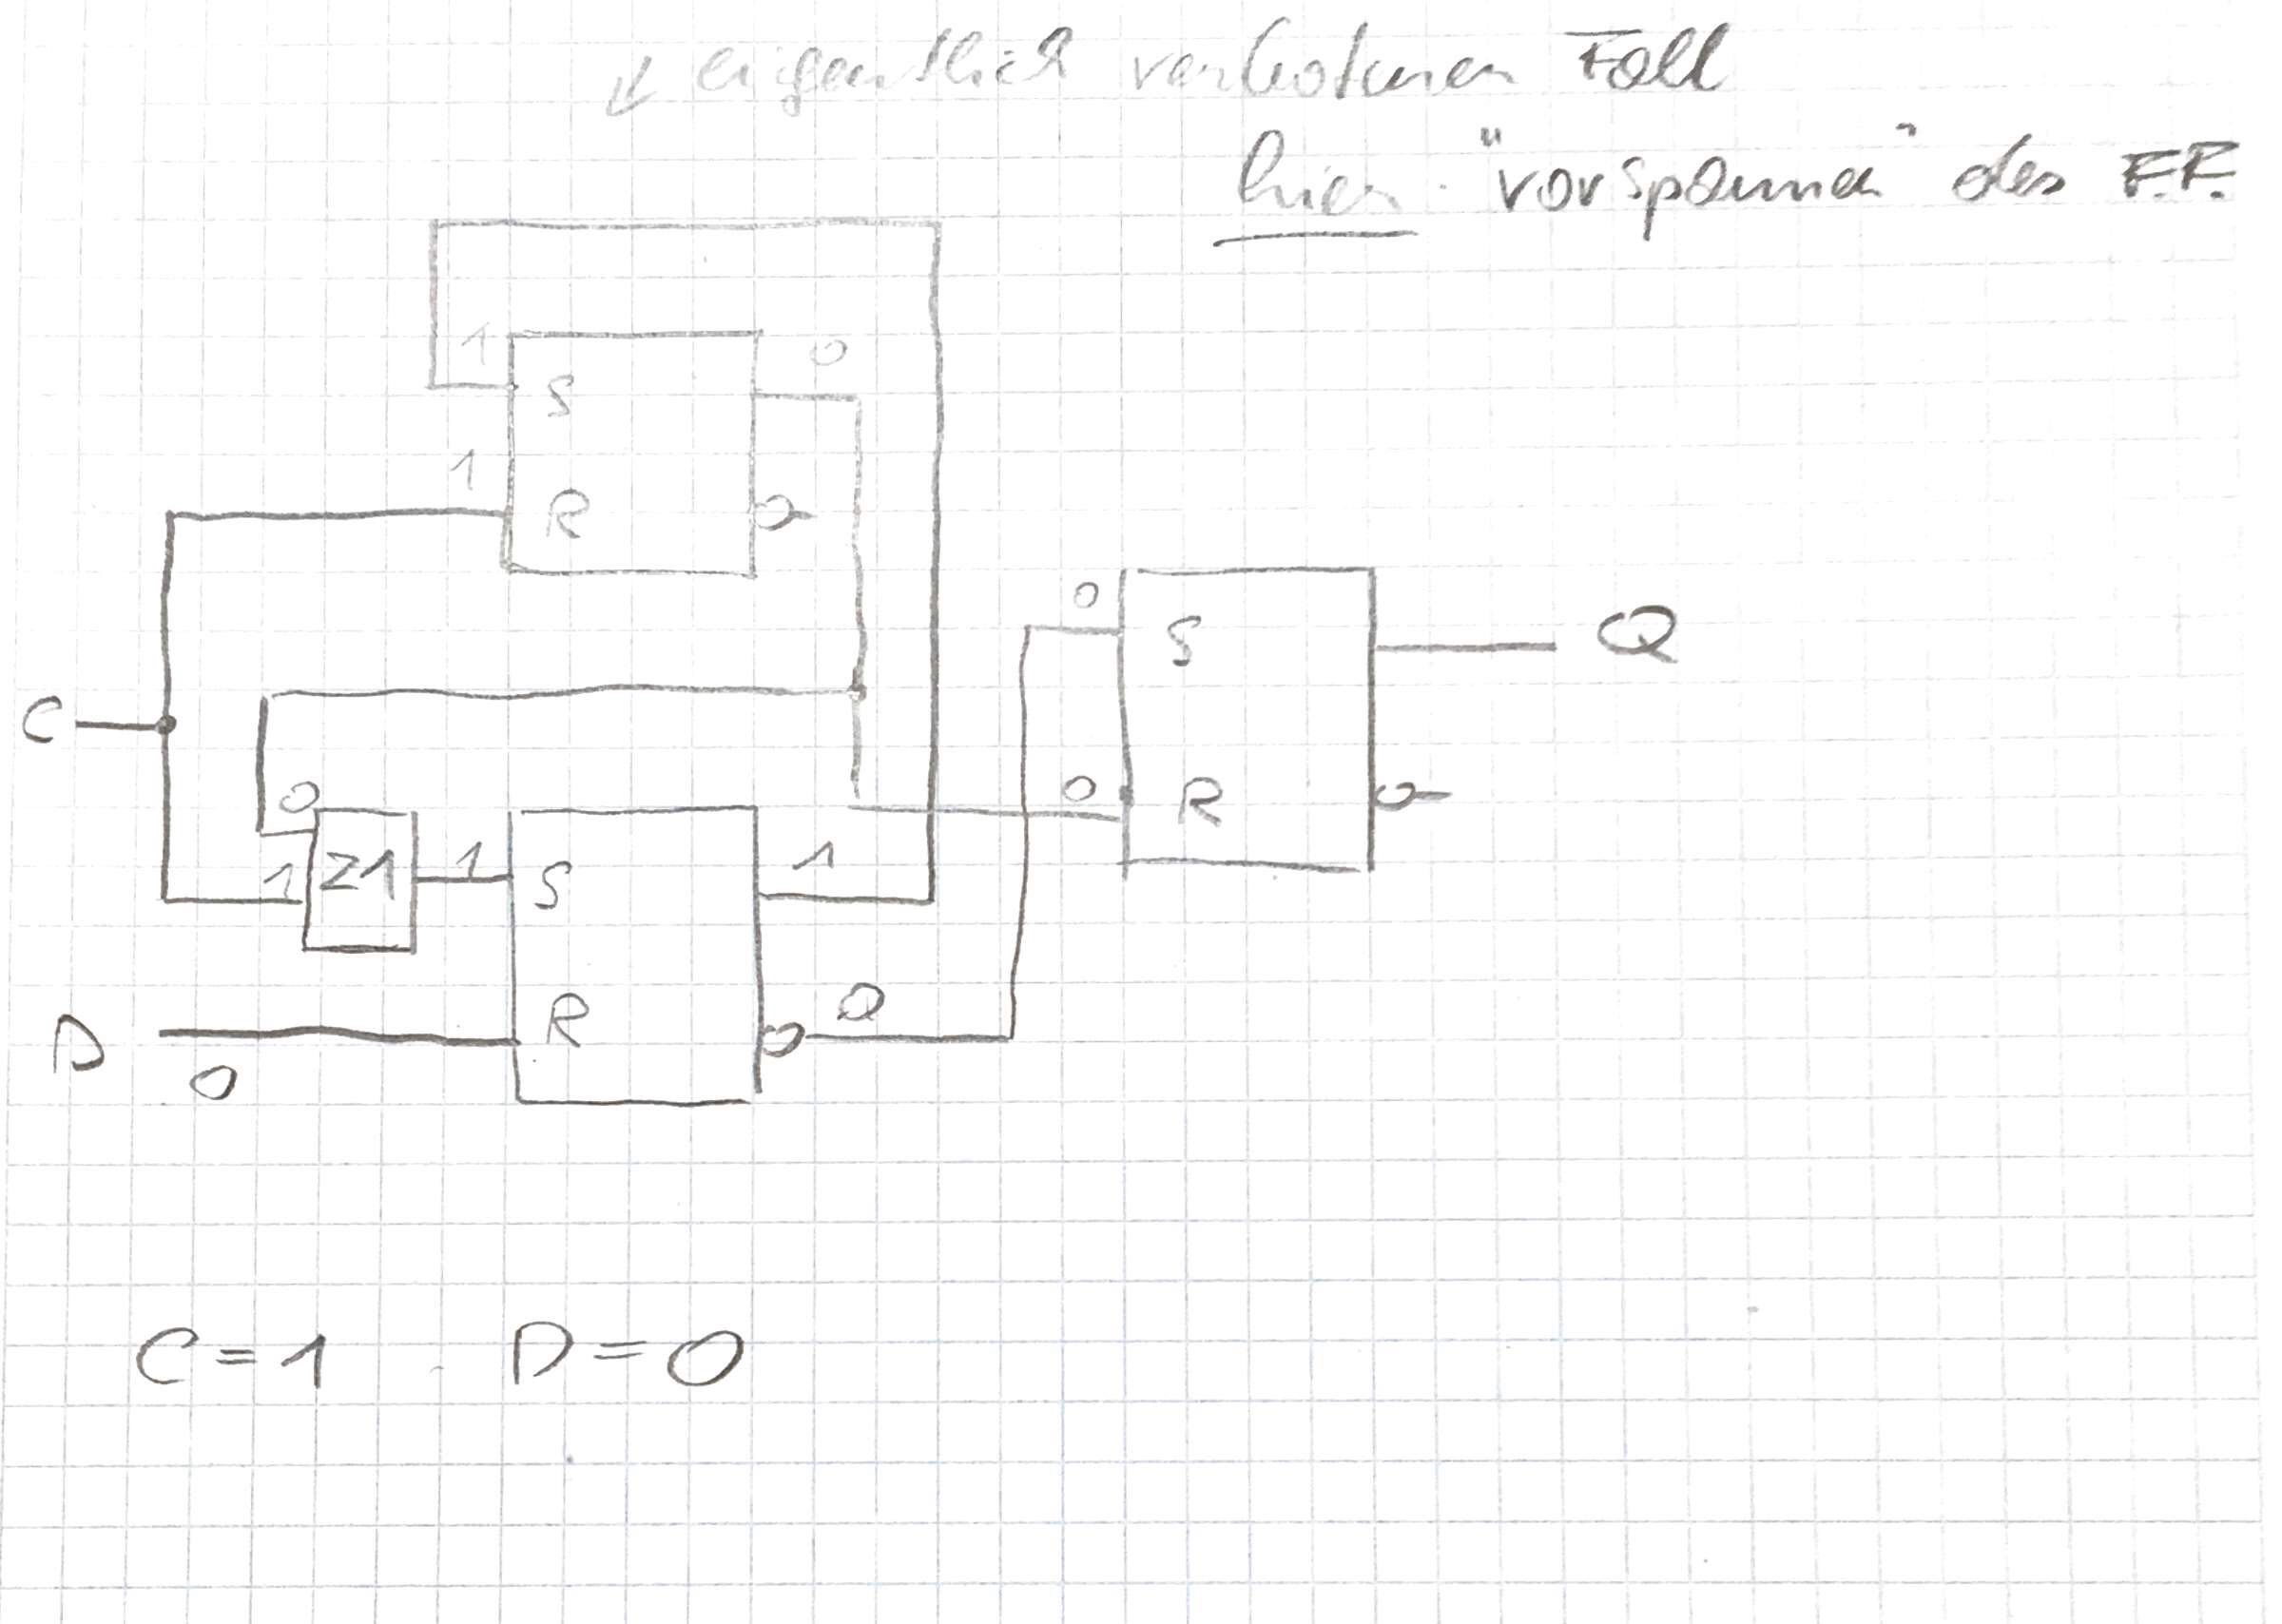 ↙ eigentlich verbotener Fall
hier "vorspannen" des F.F.
1 0
S
1
R
0
S Q
C
0 0
R
≥1 1 S 1
1
R 0
D
0
C = 1 D = 0